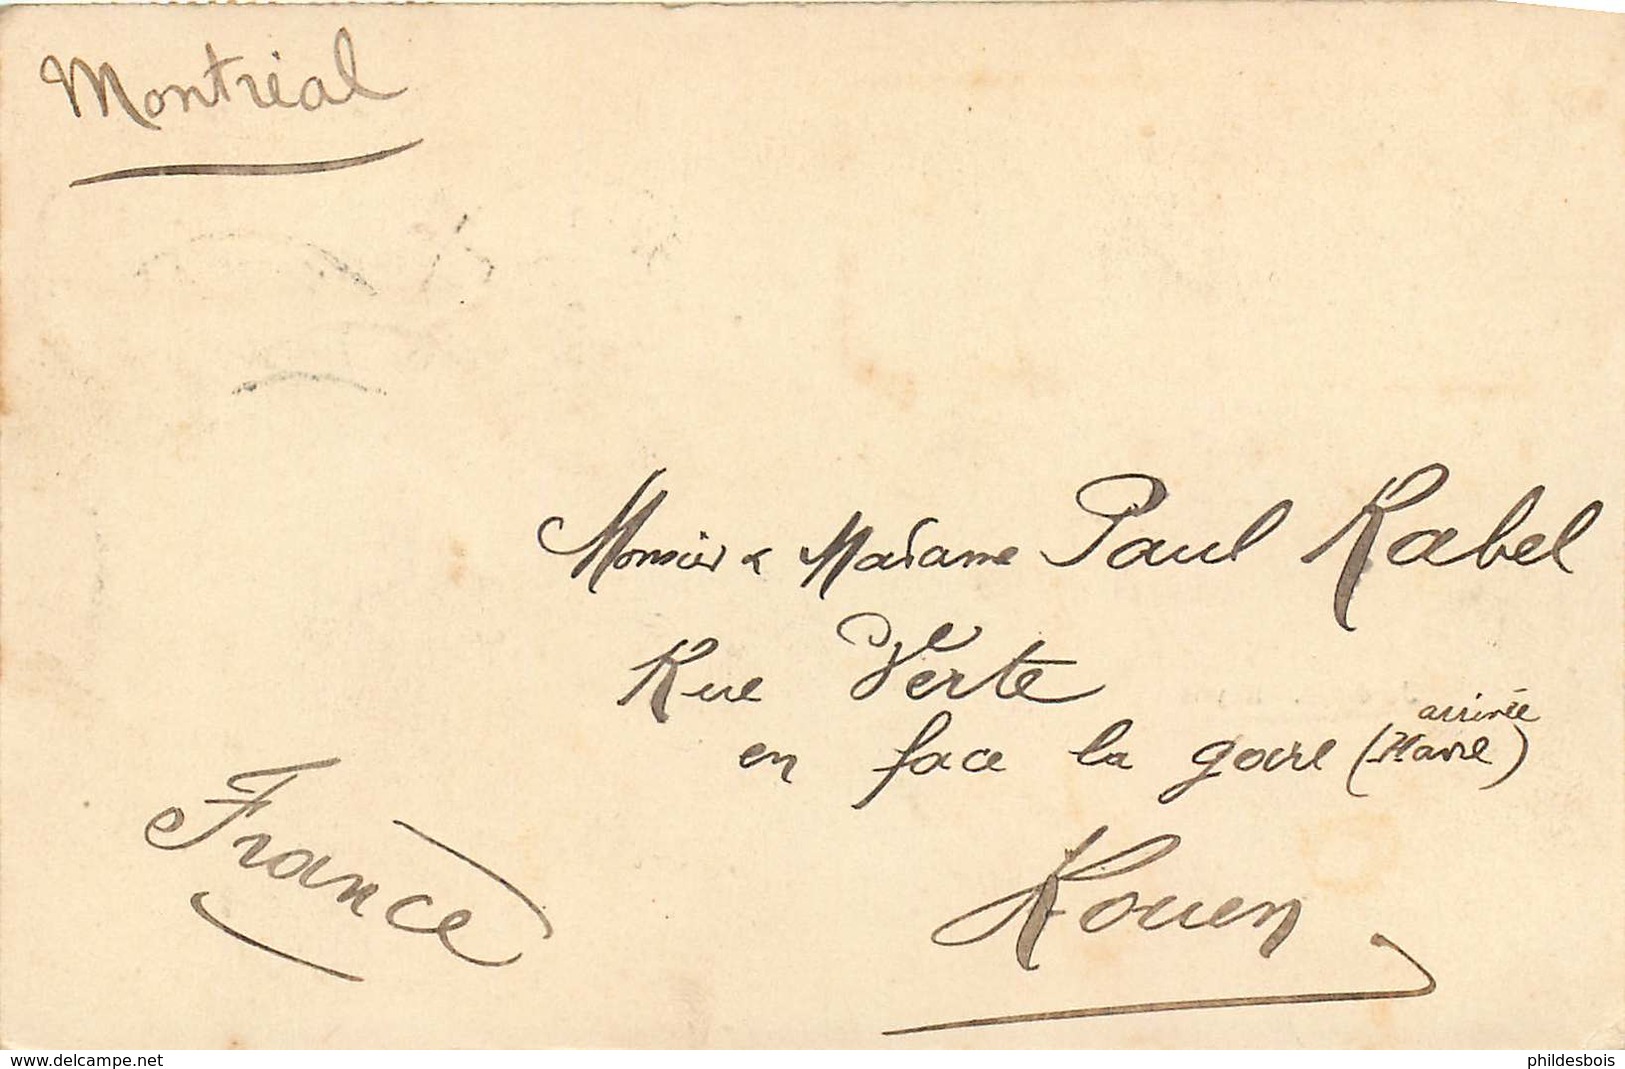 Montréal
Monsieur & Madame Paul Rabel
Rue Verte
en face la gare (Havre)
arrivée
Rouen
France
www.delcampe.net
phildesbois